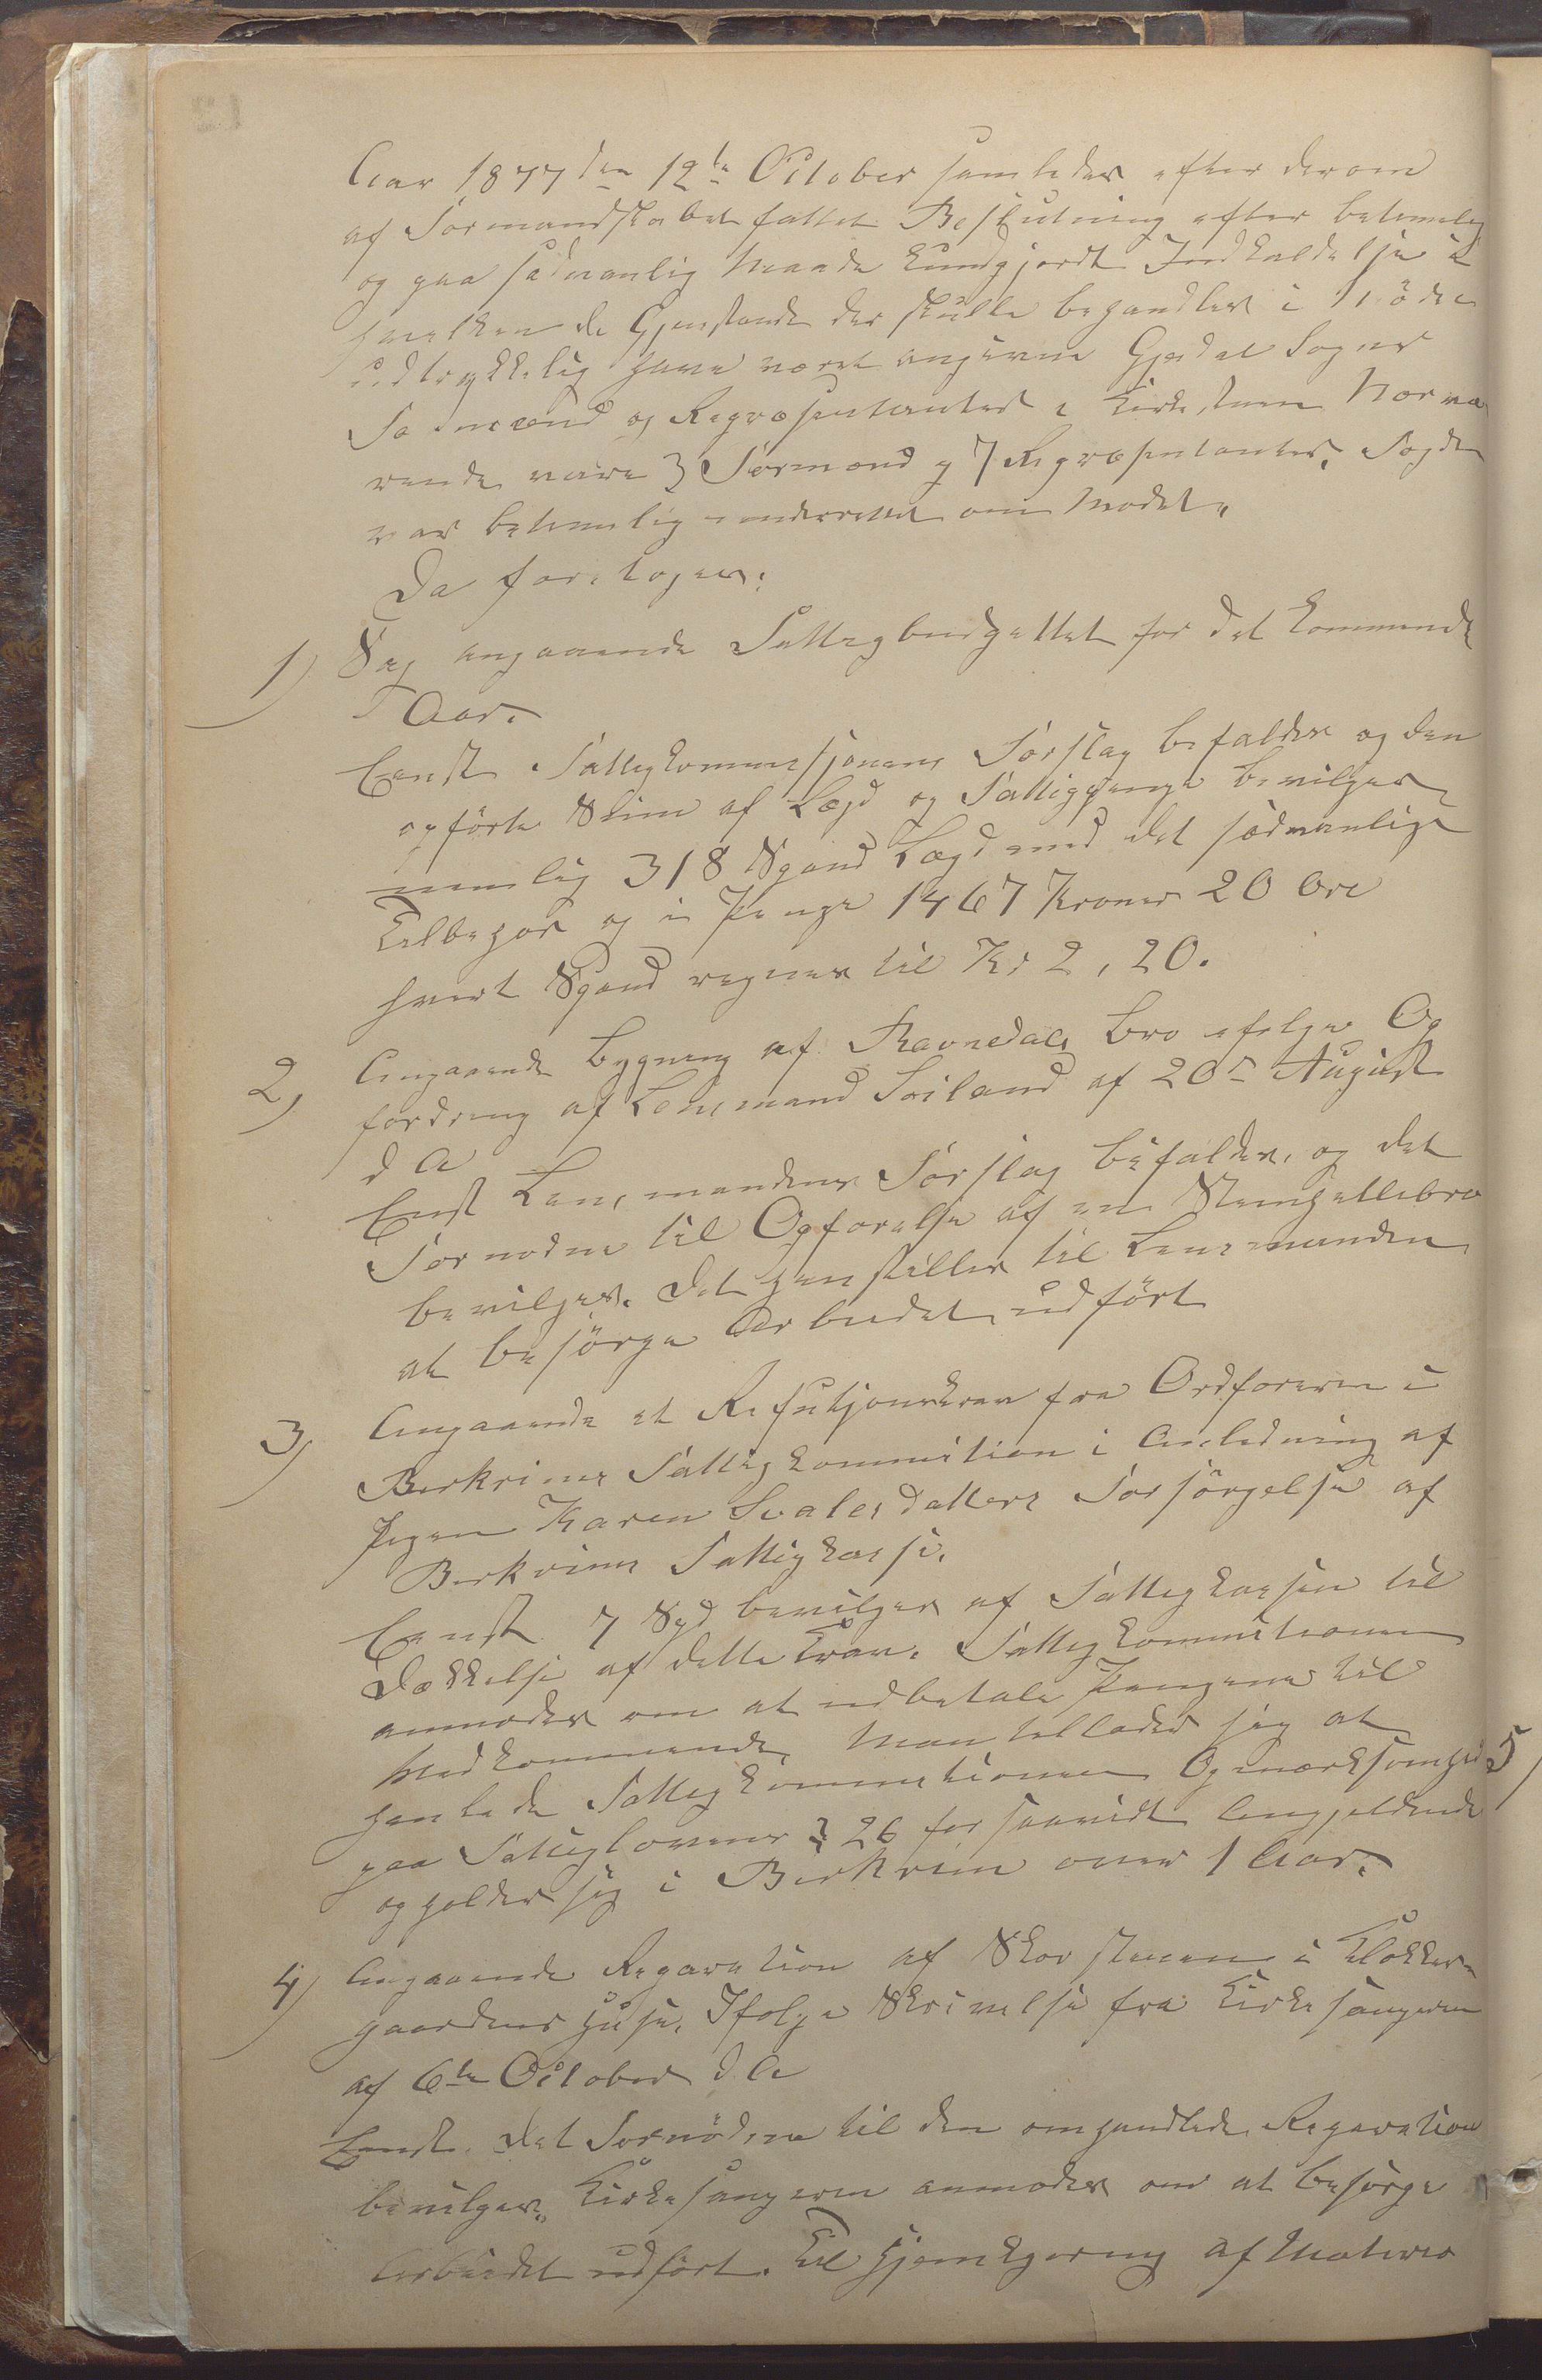 Aar 1877 den 12te October samledes efter derom
af Formandskabet fattet Beslutning efter betimelig
og paa sedvanlig Maade kundgjordt Indkaldelse i
hvilken de Gjenstande der skulle behandles i Mödet
udtrykkelig have været angivne Gjesdal Sogns
Formænd og Repræsentanter i Kirkestuen Nærvæ
rende vare 3 Formænd og 7 Repræsentanter. Fogden
var betimelig underrettet om Mødet.
Da foretoges:
1) Sag angaaende Fattigbudgettet for det kommende
Aar.
Eenst. Fattigkommissjonens Forslag befaldes og den
opförte Sum af Lægd og Fattigpenge bevilges
nemlig 318 Spand Lægd med det sædvanlige
Tilbehør og i Penge 1467 Kroner 20 Øre
hvert Spand regnes til Kr 2,20.
2) Angaaende Bygning af Ravnedals Bro ifølge Op
fordring af Lensmand Soiland af 20de August
d A
Enst Lensmandens Forslag bifaldes, og det
Fornødne til Opførelse af en Stenhellebro
bevilges. Det henstilles til Lensmanden
at besörge Arbeidet udfört
3) Angaaende et Refusjonskrav fra Ordføreren i
Birkrims Fattigkommission i Anledning af
Pigen Karen Svalesdatters Forsörgelse af
Birkrims Fattigkasse.
Eenst 7 Spd bevilges af Fattigkassen til
Dækkelse af dette Krav. Fattigkommissionen
anmodes om at udbetale Pengene til
Vedkommende. Man tillader sig at
henlede Fattigkommissionens Opmærksomhed
paa Fattiglovens § 26 forsaavidt Angjeldende
opholder sig i Birkrim over 1 Aar.
5)
4) Angaaende Reparation af Skorstenen i Klokker-
gaardens Huse. Ifølge Skrivelse fra Kirkesangeren
af 6te October d A
Eenst. Det Fornödne til den omhandlede Reparation
bevilges. Kirkesangeren anmodes om at besörge
Arbeidet udfört. Til Hjemkjøring af Materia